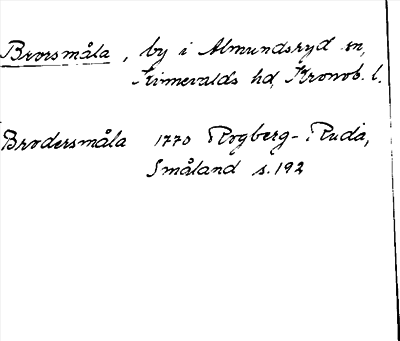 Brorsmåla, by i Almundsryd sn,
Kinnevalds hd, Kronob. l.
Brodersmåla 1770 Rogberg-Ruda,
Småland s. 192